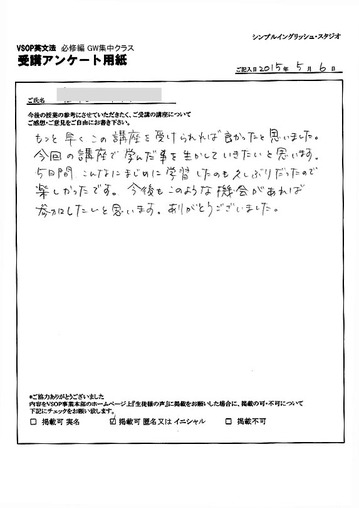 シンプルイングリッシュ・スタジオ
VSOP英文法 必修編 GW集中クラス
受講アンケート用紙
ご記入日 2015年 5月 6日
ご氏名
今後の授業の参考にさせていただきたく、ご受講の講座について
ご感想・ご意見をご自由にお書き下さい。
もっと早くこの講座を受けられれば良かったと思いました。
今回の講座で学んだ事を生かしていきたいと思います。
5日間 こんなにまじめに学習したのも久しぶりだったので
楽しかったです。今後もこのような機会があれば
参加したいと思います。ありがとうございました。
*ご協力ありがとうございました
内容をVSOP事業本部のホームページ上『生徒様の声』に掲載をお願いした場合に、掲載の可・不可について
下記にチェックをお願い致します。
□ 掲載可 実名 ☑ 掲載可 匿名又は イニシャル □ 掲載不可